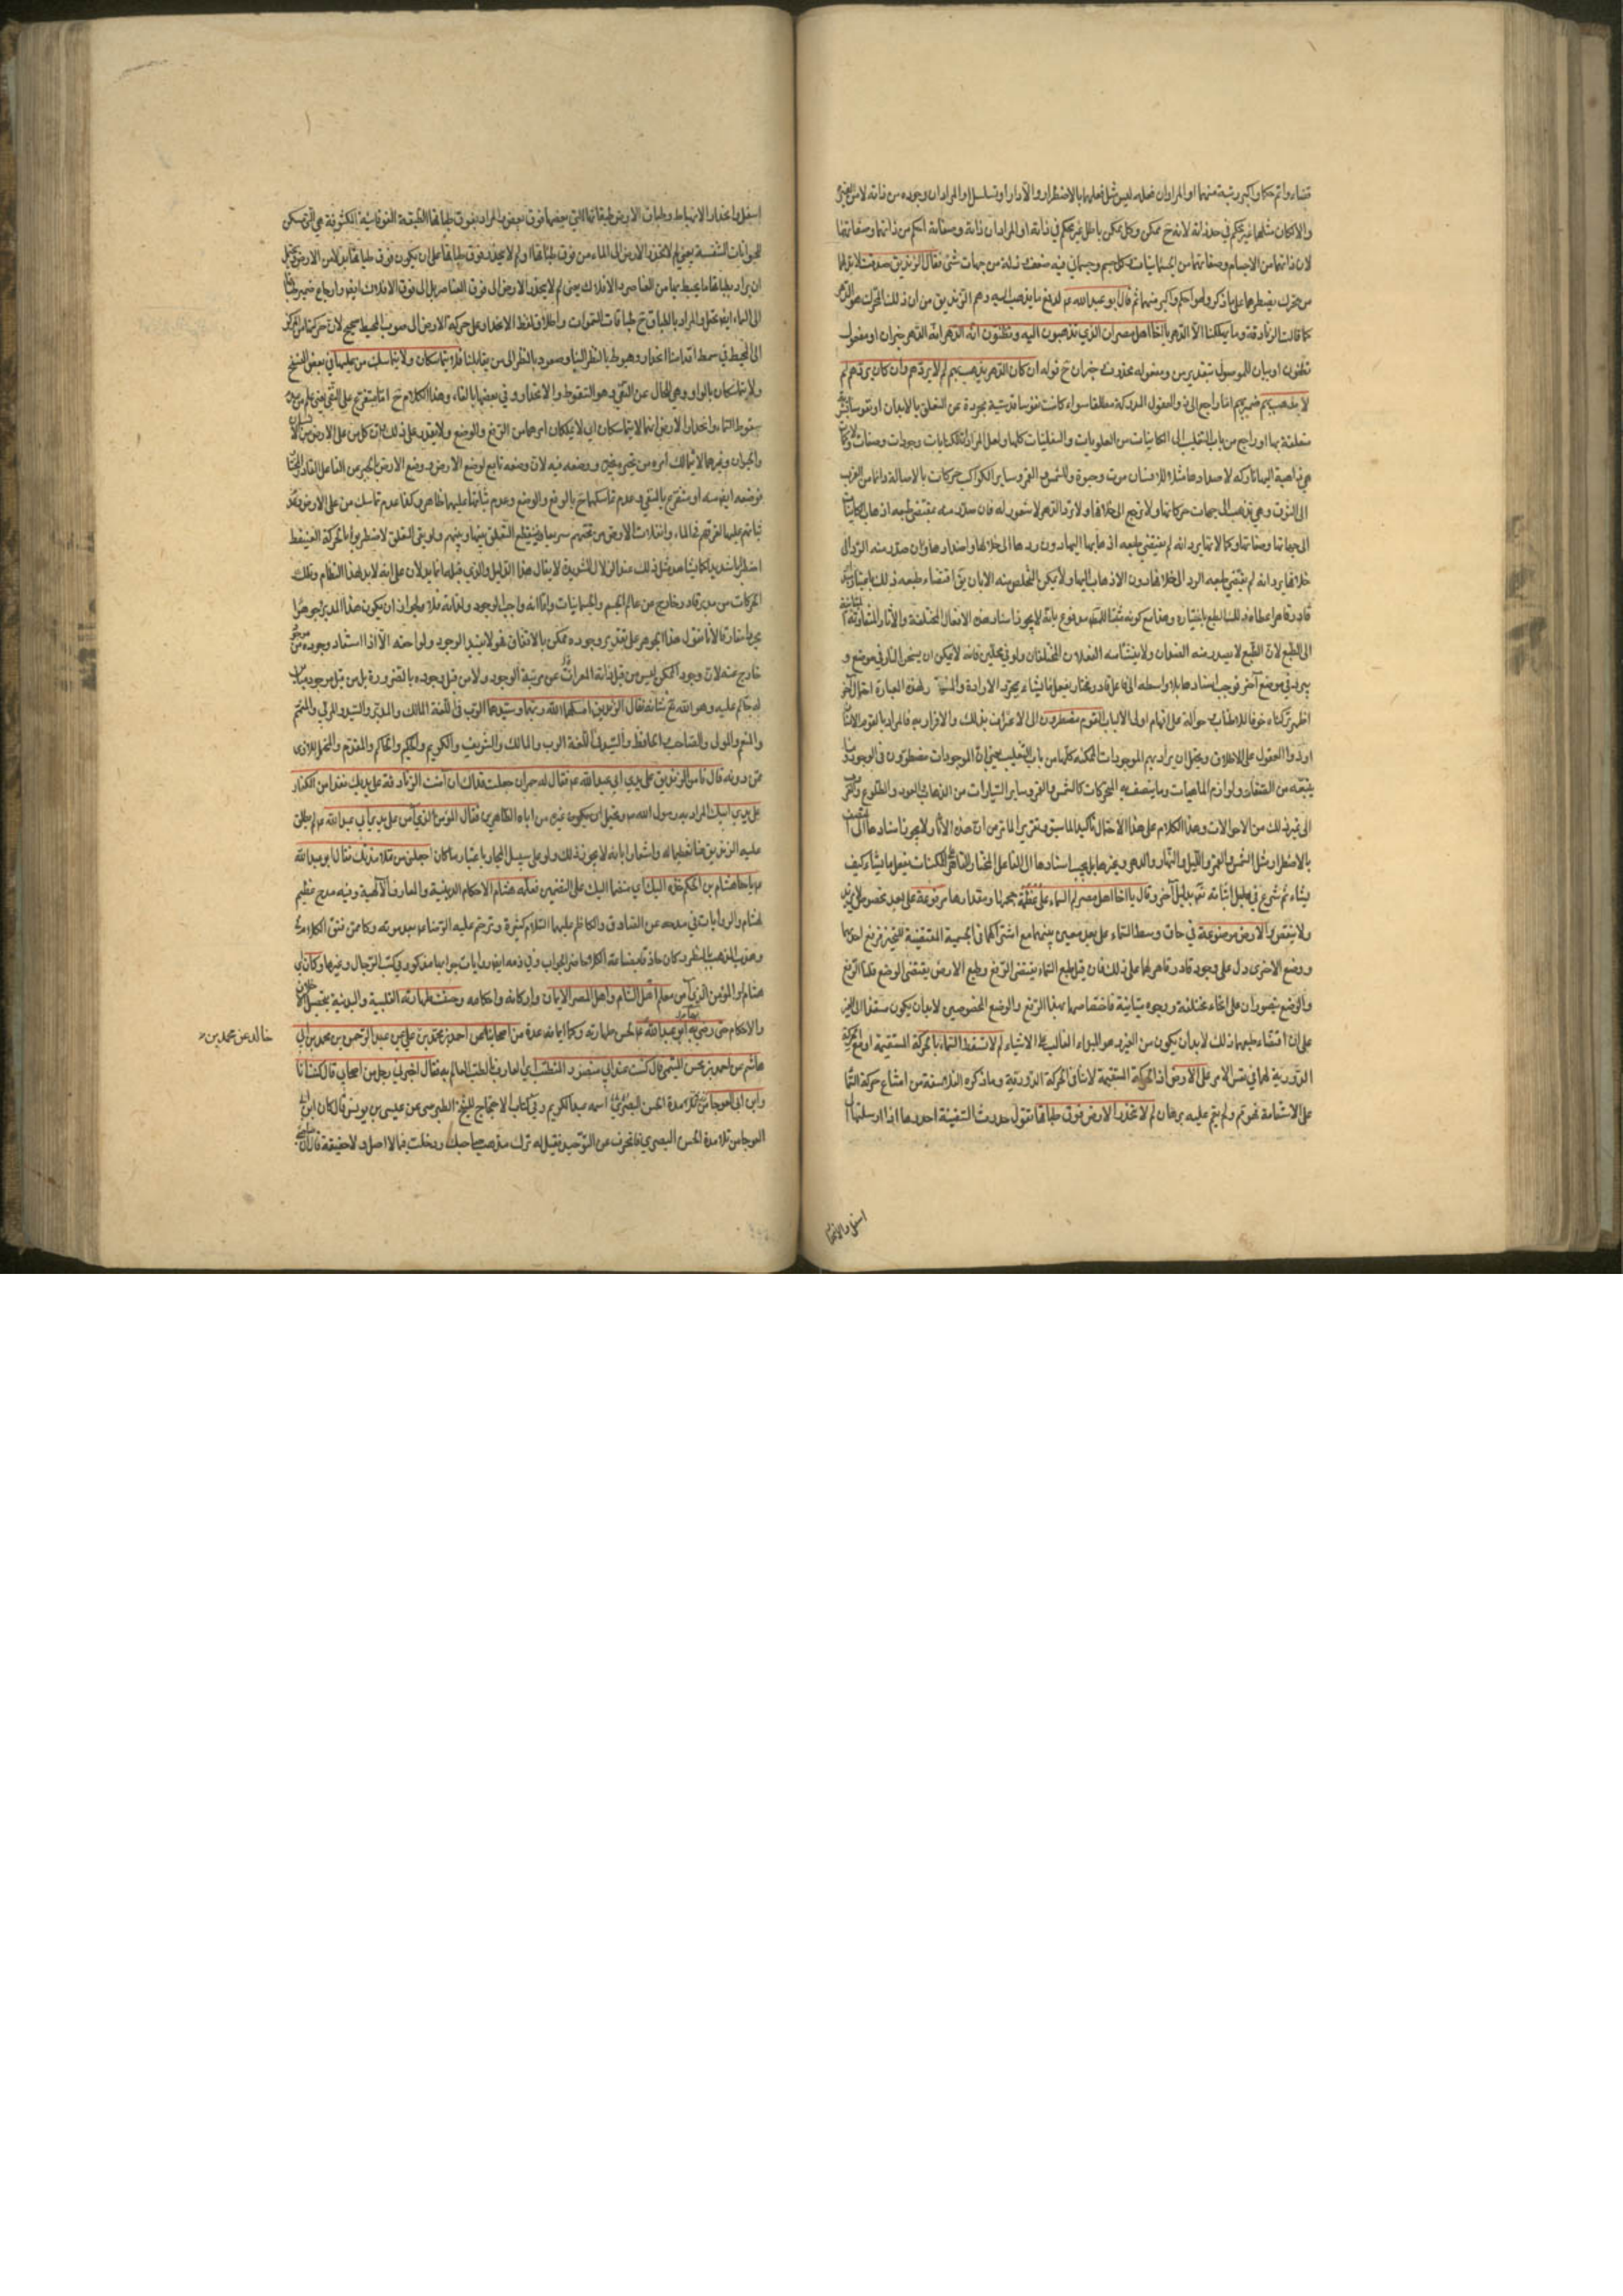 قضاء واتم حكما واكبر رتبة منهما او المراد ان فعله ليس مثل فعلهما بالاضطرار والا دار او تسلسل او المراد ان وجوده من ذاته لا من الغير
والامكان مثلهما غير محكم في حد ذاته لانه ح ممكن وكل ممكن باطل غير محكم في ذاته او المراد ان ذاته وصفاته احكم من ذاتهما وصفاتهما
لان ذاتهما من الاجسام وصفاتهما من الجسمانيات وكل جسم وجسماني فيه ضعف من جهات شتى فقال الزنديق صدقت لا بد لهما
من محرك يضطرهما على ما ذكر وهو احكم واكبر منهما ثم قال ابو عبد الله عم لدفع ما يذهب اليه وهم الزنديق من ان ذلك المحرك هو الدهر
كما قالت الزنادقة وما يهلكنا الا الدهر يا اخا اهل مصر ان الذي تذهبون اليه وتظنون انه الدهر انه الدهر خبر ان او مفعول
تظنون او بيان للموصول بتقدير من ومفعوله محذوف خبر ان ح قوله ان كان الدهر يذهب بهم لم لا يردهم وان كان يردهم لم
لا يذهب بهم ضمير بهم اما راجع الى ذوي العقول المدركة مطلقا سواء كانت نفوسا قدسية مجردة عن التعلق بالابدان او نفوسا بشرية
متعلقة بها او راجع من باب التغليب الى الكائنات من العلويات والسفليات كلها ولعل المراد ان للكائنات وجودات وصفات وكمالات
هي ذاهبة اليها تاركة لاضدادها مثلا للانسان موت وحيوة وللشمس والقمر وساير الكواكب حركات بالاصالة دائما من المغرب
الى الشرق وهي تذهب الى جهات حركاتها ولا ترجع الى خلافها ولا ريب ان الدهر لا شعور له فان صدر منه بمقتضى طبعه اذهاب الكائنات
الى جهاتها وصفاتها وكمالاتها يرد انه لم يقتضي طبعه اذهابها اليها دون ردها الى خلافها واضدادها وان صدر منه الرد الى
خلافها يرد انه لم يقتضي طبعه الرد الى خلافها دون الاذهاب اليها ولا يمكن التخلص منه الا بان يق اقتضاء طبعه ذلك باعتبار ان
قادرا قاهرا اعطاه ذلك الطبع باختياره وهذا مع كونه مثبتا للمطلوب مدفوع بانه لا يجوز اسناد هذه الافعال المختلفة والاثار المتفاوتة
الى الطبع لان الطبع لا يصدر منه الضدان ولا ينشأ منه الفعلان المختلفان ولو في محلين فانه لا يمكن ان يسخن النار في موضع و
يبرد في موضع آخر فوجب اسنادها بلا واسطة الى فاعل قادر مختار يفعل ما يشاء بمجرد الارادة والمشية ولهذه العبارة احتمال آخر
اظهر تركناه خوفا للاطناب حوالة على افهام اولى الالباب القوم مضطرون الى الاعتراف بذلك والاقرار به فالمراد بالقوم الانسان
او ذووا العقول على الاطلاق ويحتمل ان يراد بهم الموجودات الممكنة كلها من باب التغليب يعني ان الموجودات مضطرون في الوجود وما
يتبعه من الصفات ولوازم الماهيات وما يتصف به المتحركات كالشمس والقمر وساير السيارات من الذهاب والعود والطلوع والغروب
الى غير ذلك من الاحوالات وهذا الكلام على هذا الاحتمال تأكيد لما سبق وتقرير لما مر من ان هذه الاثار لا يجوز اسنادها الى
بالاضطرار مثل الشمس والقمر والليل والنهار والدهر وغيرها بل يجب اسنادها الى الفاعل المختار القاهر للممكنات يفعل ما يشاء كيف
يشاء ثم شرع في دليل اثباته تع بدليل آخر وقال يا اخا اهل مصر لم السماء على عظمة حجمها ومقدارها مرفوعة على بعد مخصوص لا يزيد
ولا ينقص والارض موضوعة في حاق وسط السماء على بعد معين بينهما مع اشتراكهما في الجسمية المقتضية للتحيز فرفع احدهما
ووضع الاخرى دل على وجود قادر قاهر لهما على ذلك فان قيل طبع السماء يقتضي الرفع وطبع الارض يقتضي الوضع قلنا الرفع
والوضع يتصوران على انحاء مختلفة ووجوه متباينة فاختصاصهما بهذا الرفع والوضع المخصوصين لا بد ان يكون مستندا الى الغير
على ان اقتضاء طبعهما ذلك لا بد ان يكون من الغير هو المبدء الغالب على الاشياء لم لا تسقط السماء بالحركة المستقيمة او مع الحركة
الدورية لهما في نفس الامر على الارض اذ الحركة المستقيمة لا تنافي الحركة الدورية وما ذكره الفلاسفة من امتناع حركة السماء
على الاستقامة لم يتم ولم يقم عليه برهان لم لا تنحدر الارض فوق طباقها تقول حدرت السفينة احدرها اذا ارسلتها الى
اسفل والانحدار
اسفل والانحدار الانهباط وطباق الارض طبقاتها التي بعضها فوق بعض والمراد بفوق طباقها الطبقة الفوقانية المكشوفة هي التي مسكن
الحيوانات المتنفسة يعني لم لا تنحدر الارض الى الماء من فوق طباقها او لم لا ينحدر فوق طباقها على ان يكون فوق طباقها بدلا من الارض ويحتمل
ان يراد بطباقها ما يحيط بها من العناصر والافلاك يعني لم لا ينحدر الارض الى فوق العناصر بل الى فوق الافلاك ايضا وارجاع ضمير طباقها
الى السماء ايضا محتمل والمراد بالطباق ح طباقات السموات واطلاق لفظ الانحدار على حركة الارض الى صوب المحيط صحيح لان حركتها من المركز
الى المحيط في سمت اقدامنا انحدار وهبوط بالنظر الينا وصعود بالنظر الى من يقابلنا فلا يتماسكان ولا يتماسك من عليها في بعض النسخ
ولا يتماسكان بالواو وهي للحال عن النفي وهو السقوط والانحدار وفي بعضها بالفاء وهذا الكلام ح اما متفرع على النفي يعني يلزم من
سقوط السماء وانحدار الارض انهما لا يتماسكان اي لا يملكان امرهما من الرفع والوضع ولا يقدر على ذلك ان كل من على الارض من الانسان
والحيوان وغيرهما لا يتمالك امره من تحيزه بحيزه ووضعه فيه لان وضعه تابع لوضع الارض ووضع الارض بالجبر من الفاعل القادر المختار
فوضعه ايضا منه او متفرع بالمنفي وعدم تماسكهما ح بالرفع والوضع وعدم ثباتهما عليهما ظاهر وكذا عدم تماسك من على الارض وعدم
ثباتهم عليها لغرقهم في الماء وانفلات الارض من تحتهم سريعا فينقطع التعلق بينها وبينهم ولو بقي التعلق لاضطربوا بالحركة العنيفة
اضطرابا شديدا كما يشاهد مثل ذلك عند الزلازل الشديدة لا يقال هذا الدليل والذي قبله انما يدلان على انه لا بد لهذا النظام وتلك
الحركات من مدبر قادر خارج عن عالم الجسم والجسمانيات واما انه واجب الوجود لذاته فلا لجواز ان يكون هذا المدبر جوهرا
مجردا مفارقا لانا نقول هذا الجوهر على تقدير وجوده ممكن بالاتفاق فهو لا يستند الوجود ولواحقه الا اذا استفاد وجوده من موجود
خارج عنه لان وجود الممكن ليس من قبل ذاته المعراة عن مرتبة الوجود ولا من قبل وجوده بالضرورة بل من قبل موجود مباين
له حاكم عليه وهو الله تع شانه فقال الزنديق امسكهما الله ربهما وسيدهما الرب في اللغة المالك والمدبر والسيد والمربي والمتمم
والمنعم والمولى والصاحب والحافظ والسيد في اللغة الرب والمالك والشريف والكريم والحكيم والحاكم والمقدم والمتحمل للاذى
ممن دونه قال فآمن الزنديق على يدي ابي عبد الله عم فقال له حمران جعلت فداك ان آمنت الزنادقة على يديك فقد آمن الكفار
على يدي ابيك المراد به رسول الله ص ويحتمل ان يكون غيره من آباه الطاهرين فقال المؤمن الذي آمن على يدي ابي عبد الله عم لم يطلق
عليه الزنديق هنا تعظيما له واشعارا بانه لا يجوز ذلك ولو على سبيل المجاز باعتبار ما كان اجعلني من تلامذتك فقال ابو عبد الله
عم يا هشام بن الحكم خذه اليك اي منضما اليك على التضمين فعلمه هشام الاحكام الدينية والمعارف الالهية وفيه مدح عظيم
لهشام والروايات في مدحه عن الصادق والكاظم عليهما السلام كثيرة وترحم عليه الرضا عم بعد موته وكان ممن فتق الكلام
وهذب المذهب بالنظر وكان حاذقا بصناعة الكلام حاضر الجواب وفي ذمه ايضا روايات جوابها مذكور في كتب الرجال وغيرها وكان اي
هشام او المؤمن الذي آمن معلم اهل الشام واهل المصر الايمان واركانه واحكامه وحسنت طهارته القلبية والبدنية بتحصيل الاخلاق
والاحكام حتى رضي بها ابو عبد الله عم لحسن طهارته وكمال ايمانه عدة من اصحابنا عن احمد بن محمد بن خالد عن محمد بن علي عن عبد الرحمن بن محمد بن ابي
هاشم عن احمد بن محسن الميثمي قال كنت عند ابي منصور المتطبب اي العارف بالطب العالم به فقال اخبرني رجل من اصحابي قال كنت انا
وابن ابي العوجاء من تلامذة الحسن البصري اسمه عبد الكريم وفي كتاب الاحتجاج للشيخ الطبرسي عن عيسى بن يونس قال كان ابن ابي
العوجا من تلامذة الحسن البصري فانحرف عن التوحيد فقيل له تركت مذهب صاحبك ودخلت فيما لا اصل له ولا حقيقة فقال ان صاحبي
خالد عن محمد بن